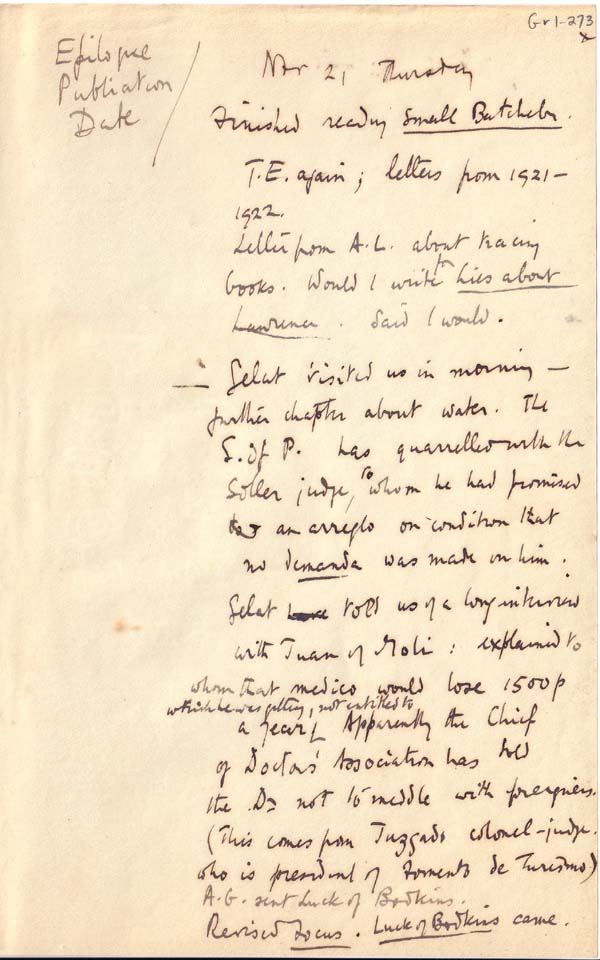 Gr1-273
x
Epilogue
Publication
Date
Nov 21 Thursday
Finished reading Small Bachelor.
T.E. again; letters from 1921–
1922.
Letter from A.L. about tracing
books. Would I write for Lies about
Lawrence. Said I would.
— Gelat visited us in morning –
further chapter about water. The
S. of P. has quarrelled with the
Soller judge, to whom he had promised
an arreglo on condition that
no demanda was made on him.
Gelat told us of a long interview
with Juan of Moli: explained to
whom that medico would lose 1500p
which he was getting, not entitled to
a year. Apparently the Chief
of Doctors' Association has told
the Dr not to meddle with foreigners.
(This comes from Juzgado colonel-judge.
who is president of Fomento de Turismo)
A.G. sent Luck of Bodkins.
Revised Focus. Luck of Bodkins came.